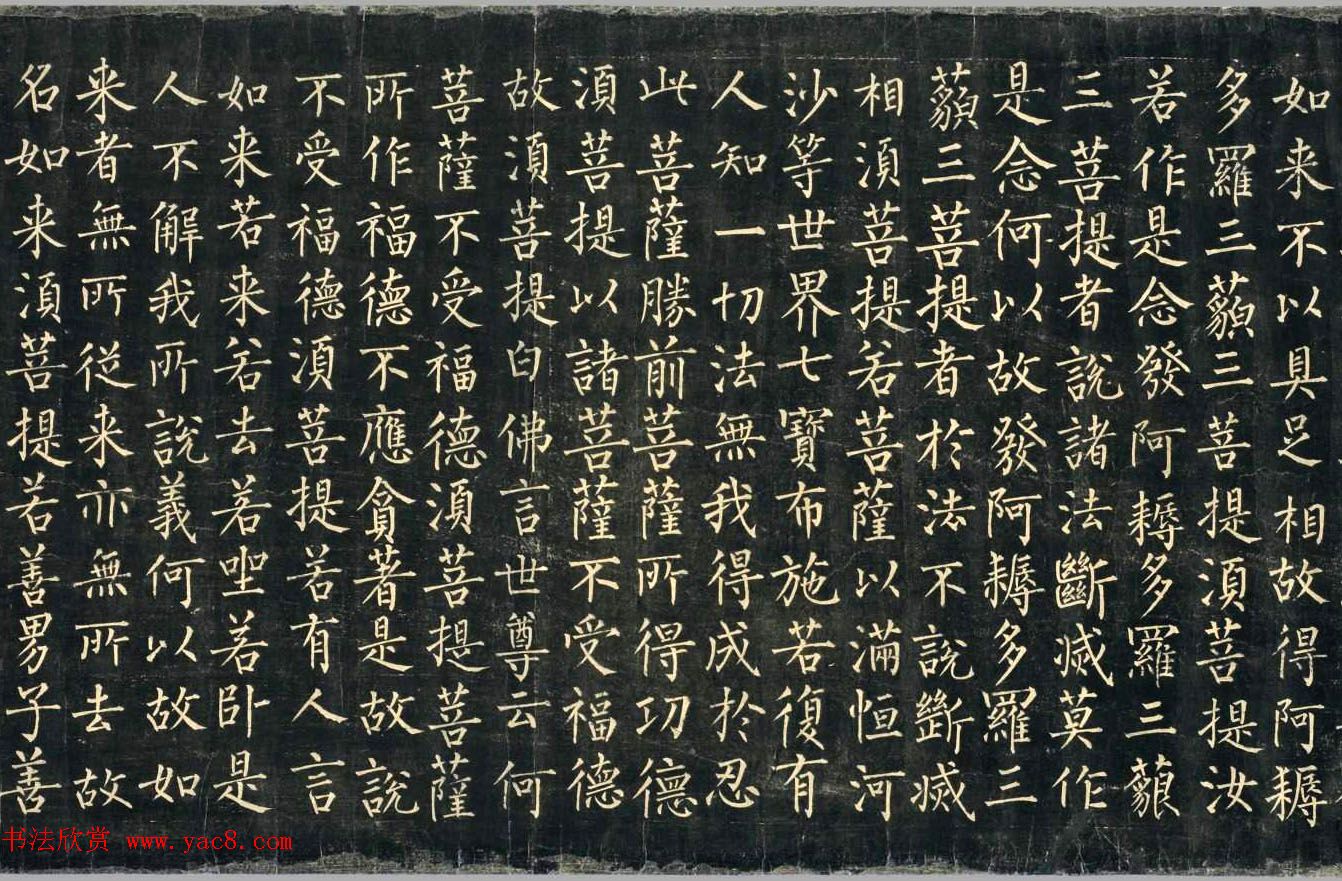 如来不以具足相故得阿耨
多羅三藐三菩提須菩提汝
若作是念發阿耨多羅三藐
三菩提者說諸法斷滅莫作
是念何以故發阿耨多羅三
藐三菩提者於法不說斷滅
相須菩提若菩薩以滿恒河
沙等世界七寶布施若復有
人知一切法無我得成於忍
此菩薩勝前菩薩所得功德
須菩提以諸菩薩不受福德
故須菩提白佛言世尊云何
菩薩不受福德須菩提菩薩
所作福德不應貪著是故說
不受福德須菩提若有人言
如来若来若去若坐若卧是
人不解我所說義何以故如
来者無所從来亦無所去故
名如来須菩提若善男子善
书法欣赏 www.yac8.com